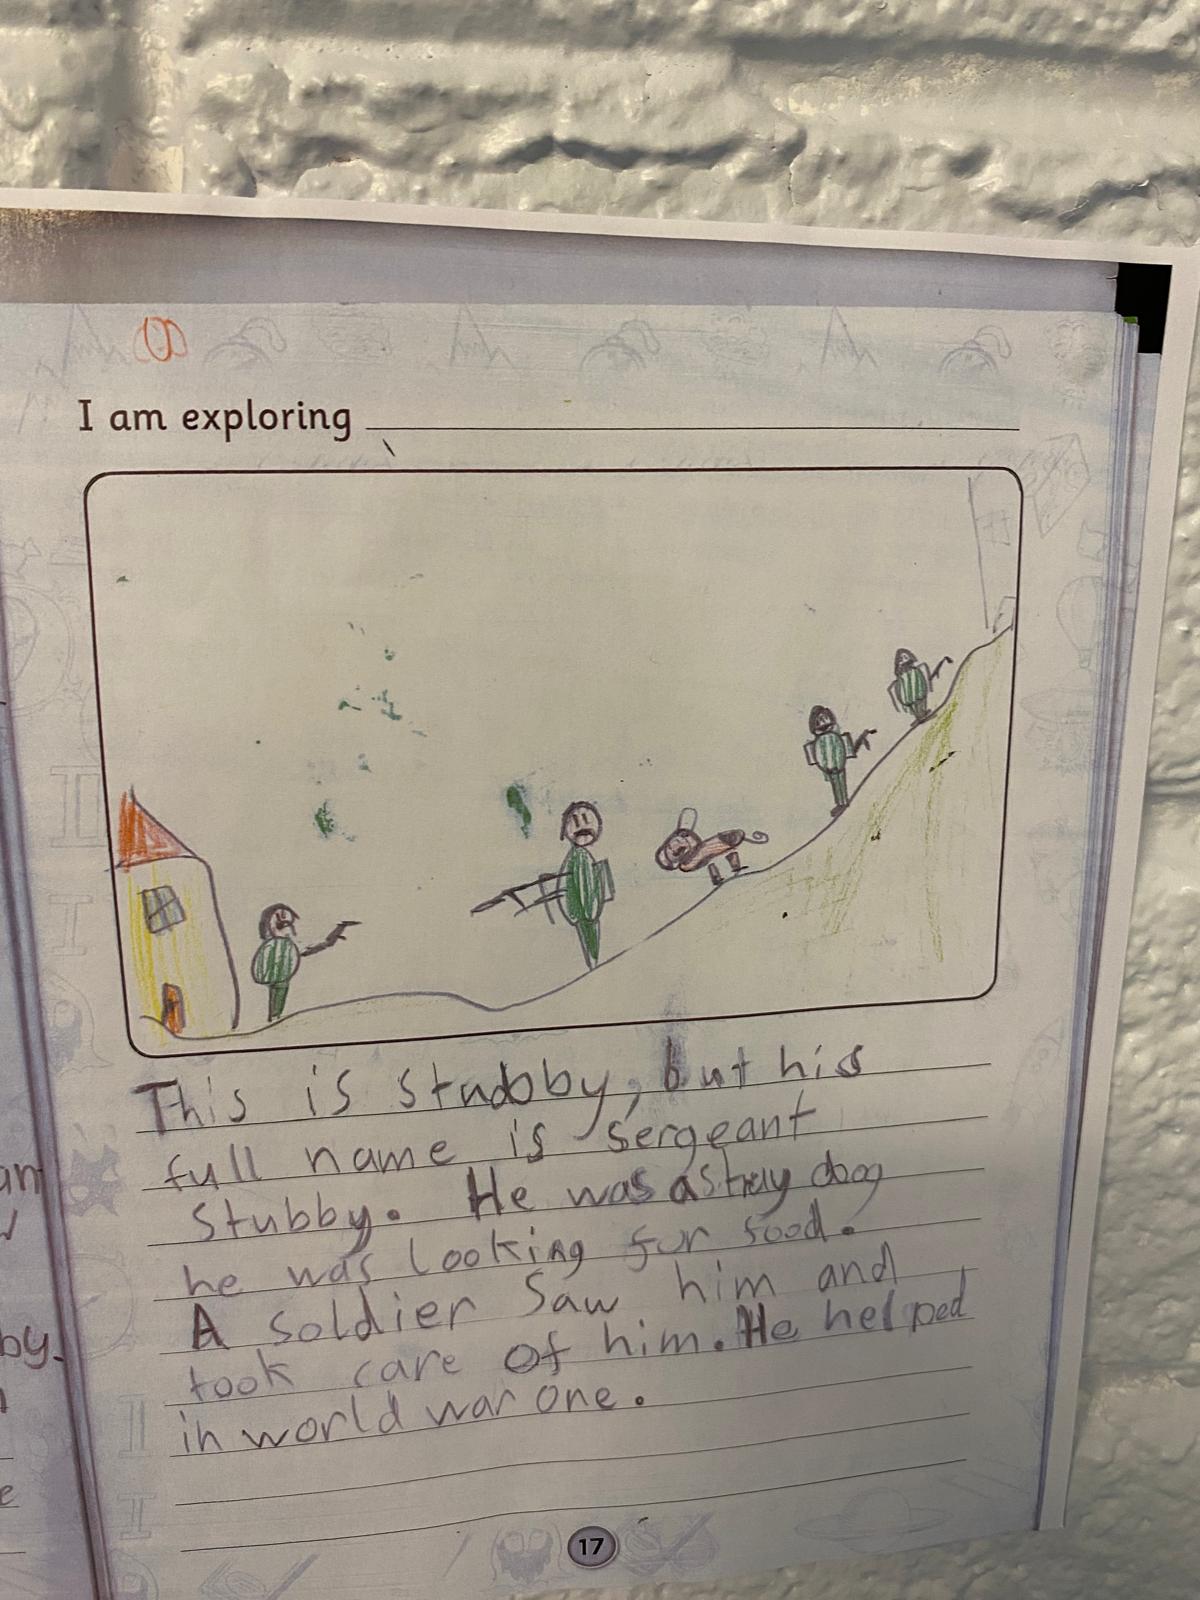 I am exploring
This is stubby, but his
full name is sergeant
Stubby. He was a stray dog
he was looking for food.
A soldier Saw him and
took care of him. He helped
in world war one.
17
an
by.
e